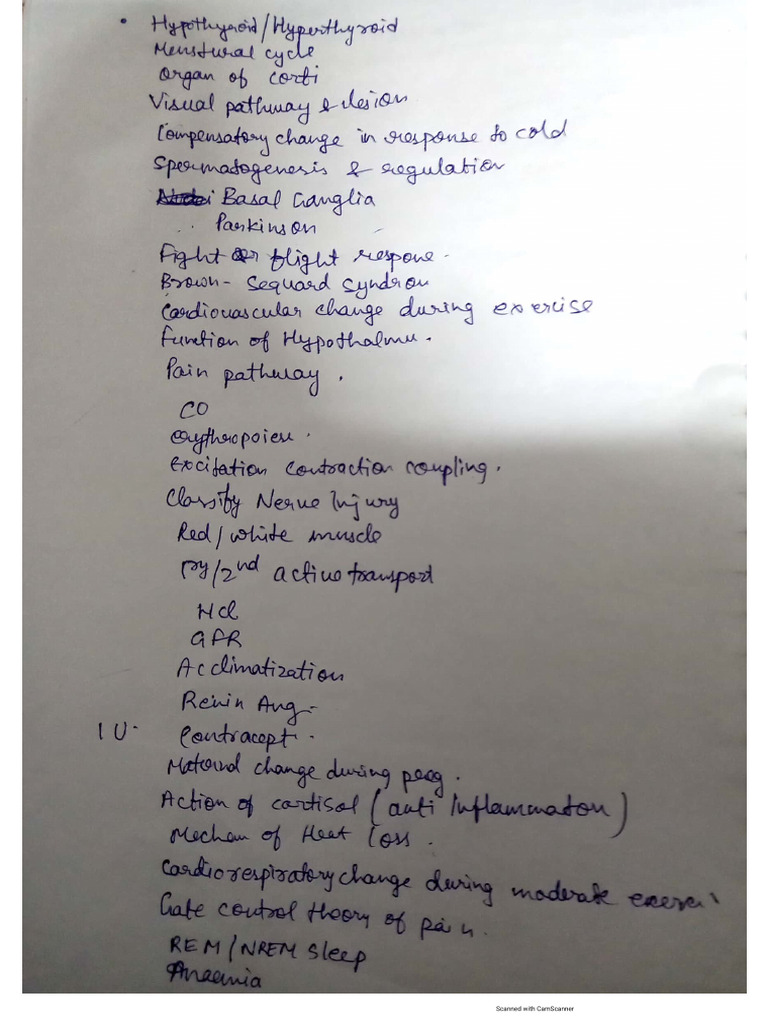 • Hypothyroid/Hyperthyroid
Menstural cycle
Organ of corti
Visual pathway & lesion
Compensatory change in response to cold
Spermatogenesis & regulation
Basal Ganglia
Parkinson
Fight or flight respone.
Brown-Sequard Syndrom
Cardiovascular change during exercise
Function of Hypothalmu.
Pain pathway.
CO
erythropoiese.
Excitation Contraction coupling.
Classify Nerve Injury
Red/white muscle
py/2nd active transport
HCl
GFR
Acclimatization
Renin Ang-
IU. Contracept.
Maternal change during preg.
Action of cortisol (anti Inflammaton)
Mechan of Heat loss.
Cardiorespiratory change during moderate exerci
Gate control theory of pain.
REM/NREM Sleep
Anaemia
Scanned with CamScanner